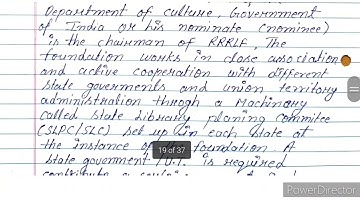 Department of culture, Government
of India or his nominate (nominee)
is the chairman of RRRLF, The
foundation works in close association
and active cooperation with different
state goverments and union territory
administration throgh a Machinary
called state Library planing commitee
(SLPC/SLC) set up in each state at
the instance of foundation. A
19 of 37
state goverment / U.T. is required
PowerDirector